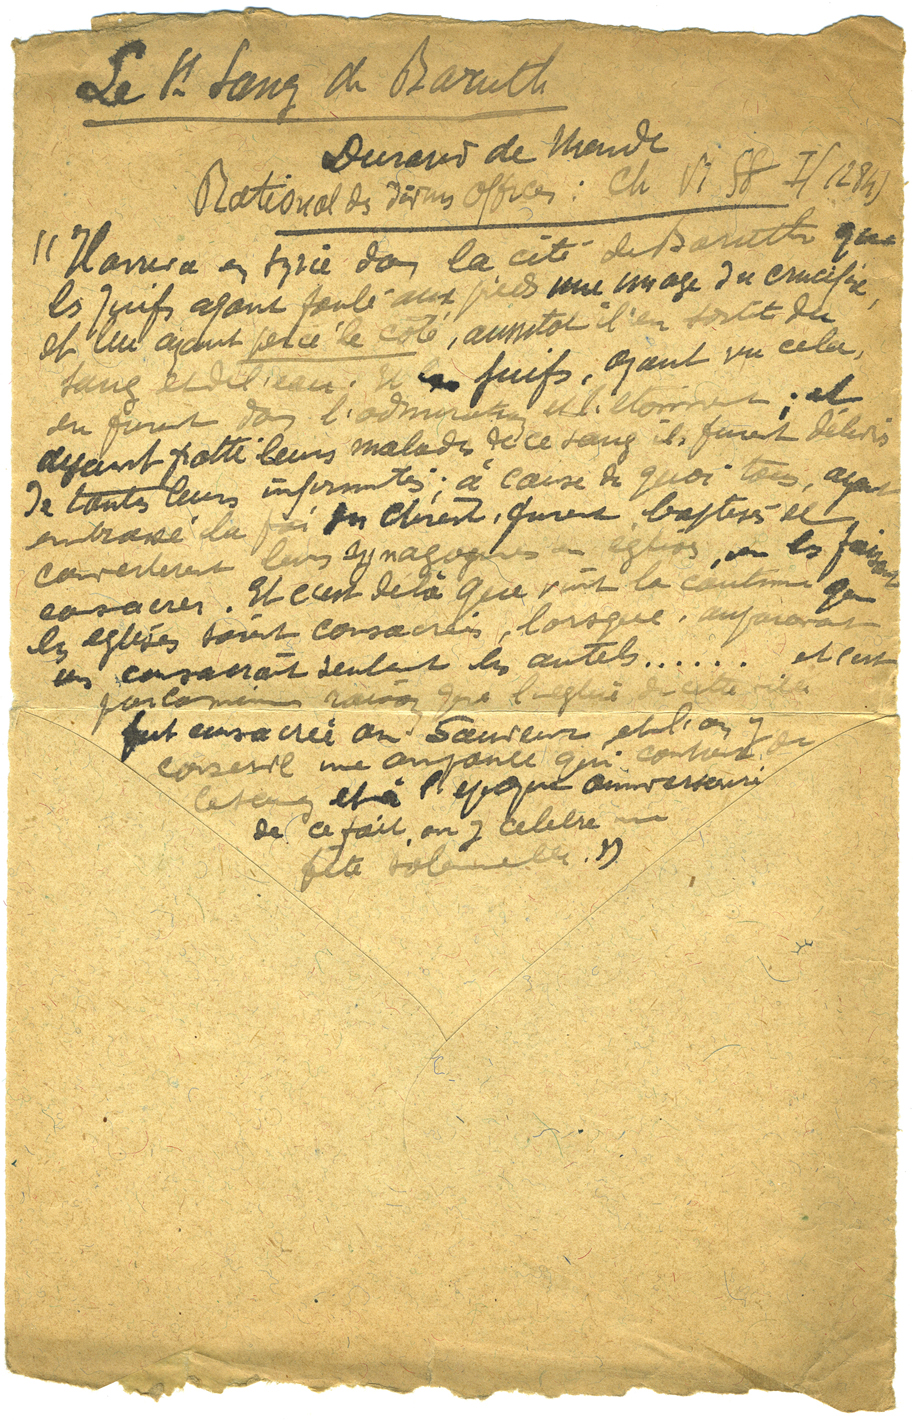 Le St Sang de Baruth
Durand de Mende
Rational des divins offices : Ch VI 58 I (1284)
"Il arriva en Syrie dans la cité de Baruth que
les Juifs ayant foulé aux pieds une image du crucifié,
et lui ayant percé le côté, aussitôt il en sortit du
sang et de l'eau. Et les Juifs, ayant vu cela,
en furent dans l'admiration et l'étonnement ; et
ayant frotté leurs malades de ce sang ils furent délivrés
de toutes leurs infirmités ; à cause de quoi tous, ayant
embrassé la foi du Christ, furent baptisés et
convertirent leurs synagogues en églises, en les faisant
consacrer. Et c'est de là que vint la coutume que
les églises soient consacrées, lorsque, auparavant
on consacrait seulement les autels...... et c'est
pour la même raison que l'église de cette ville
fut consacrée au Sauveur et l'on y
conserve une ampoule qui contient de
ce sang et à l'époque anniversaire
de ce fait, on y célèbre une
fête solennelle."